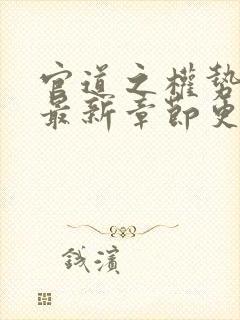 官道之權勢
最新章節更
錢濱